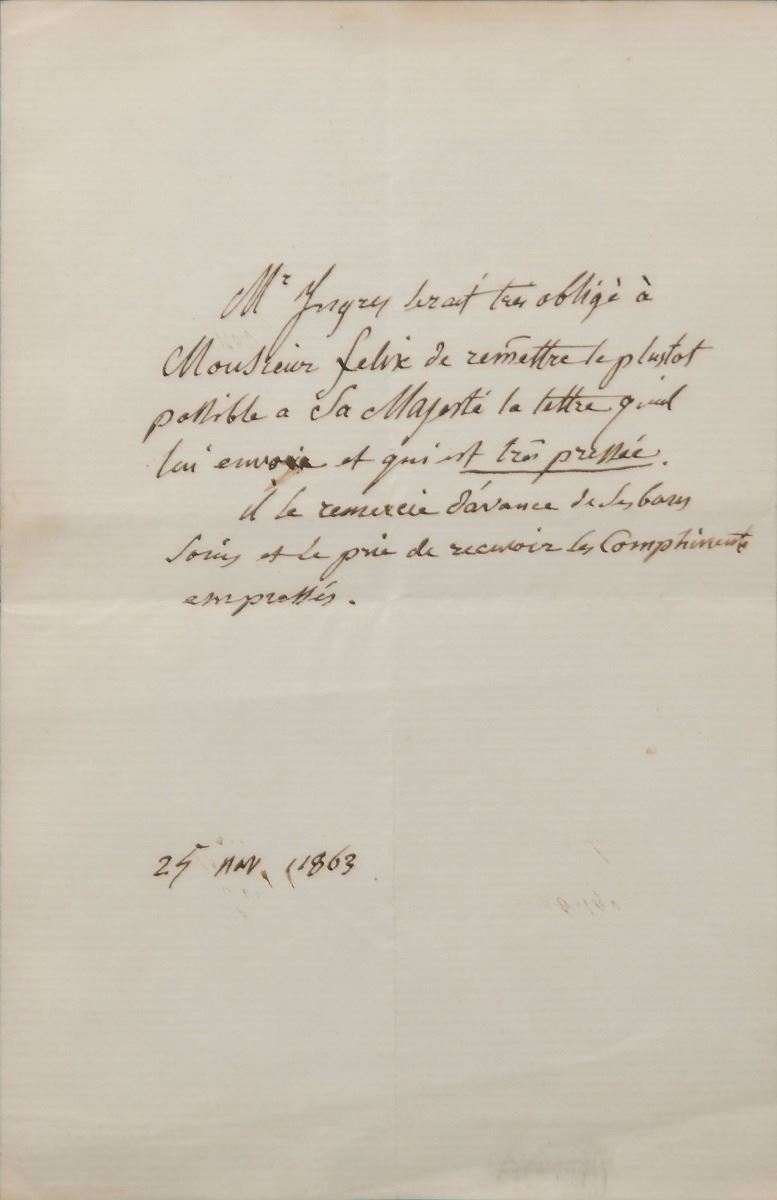 Mr Ingres serait tres obligé à
Monsieur felix de remettre le plustot
possible a Sa Majesté la lettre quil
lui envoie et qui est très pressée.
il le remercie d'avance de ses bons
soins et le prie de recevoir les Compliments
empressés.
25 nov. 1863